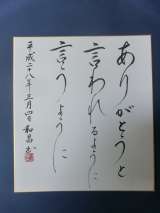 ありがとうと
言われるように
言うように
平成二十八年三月四日 和昌書